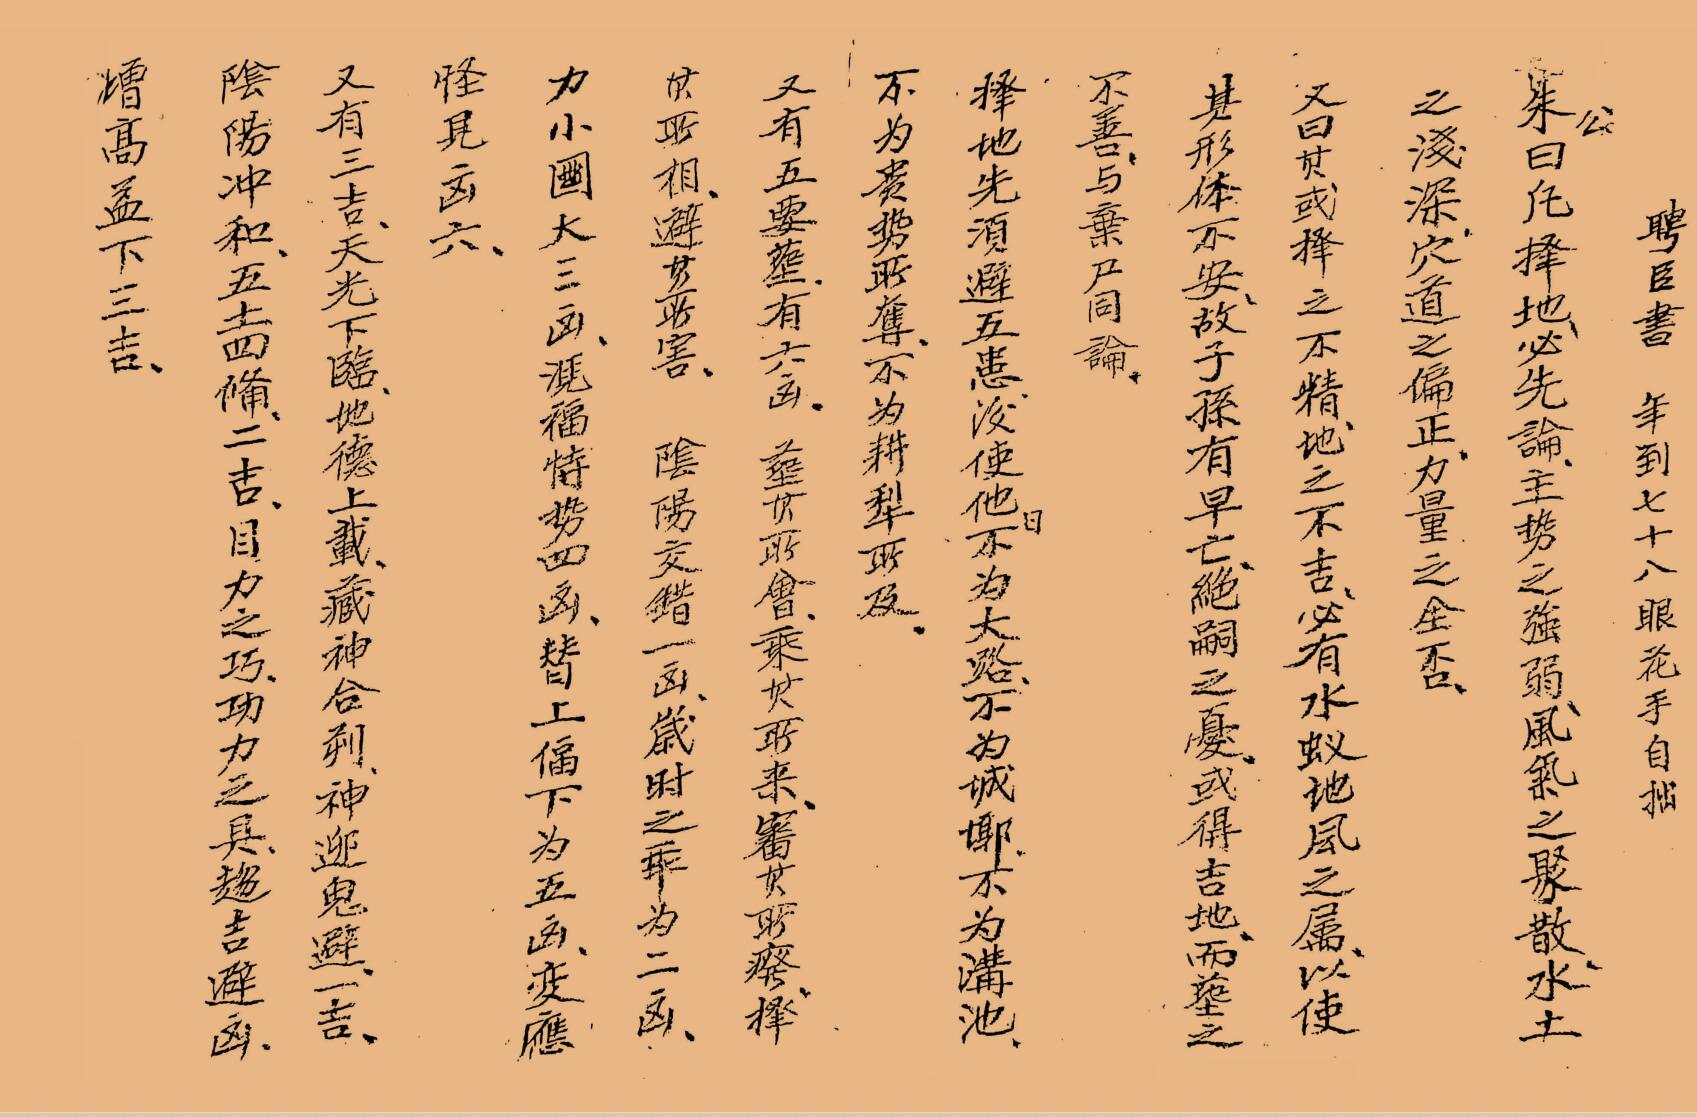 聘臣書　年到七十八眼花手自拙
朱公曰凡择地、必先論、主势之強弱、風氣之聚散、水土
之淺深、穴道之偏正、力量之全否、
又曰其或择之不精、地之不吉、必有水蚁地风之属、以使
其形体不安、故子孫有早亡、絶嗣之憂、或得吉地、而塟之
不善、与棄尸同論、
择地先須避五患、后使他日不为大路、不为城墎、不为溝池、
不为贵势所奪、不为耕犁所及、
又有五要塟、有六凶、塟其所會、乘其所来、審其所癈、择
其所相、避其所害、陰陽交錯一凶、歳时之乖为二凶、
力小圖大三凶、凭福恃势四凶、替上偪下为五凶、变應
怪見凶六、
又有三吉、天光下臨、地德上載、藏神合剎、神迎鬼避、一吉、
陰陽冲和、五土四俻、二吉、目力之巧、功力之具、趋吉避凶、
增高益下三吉、